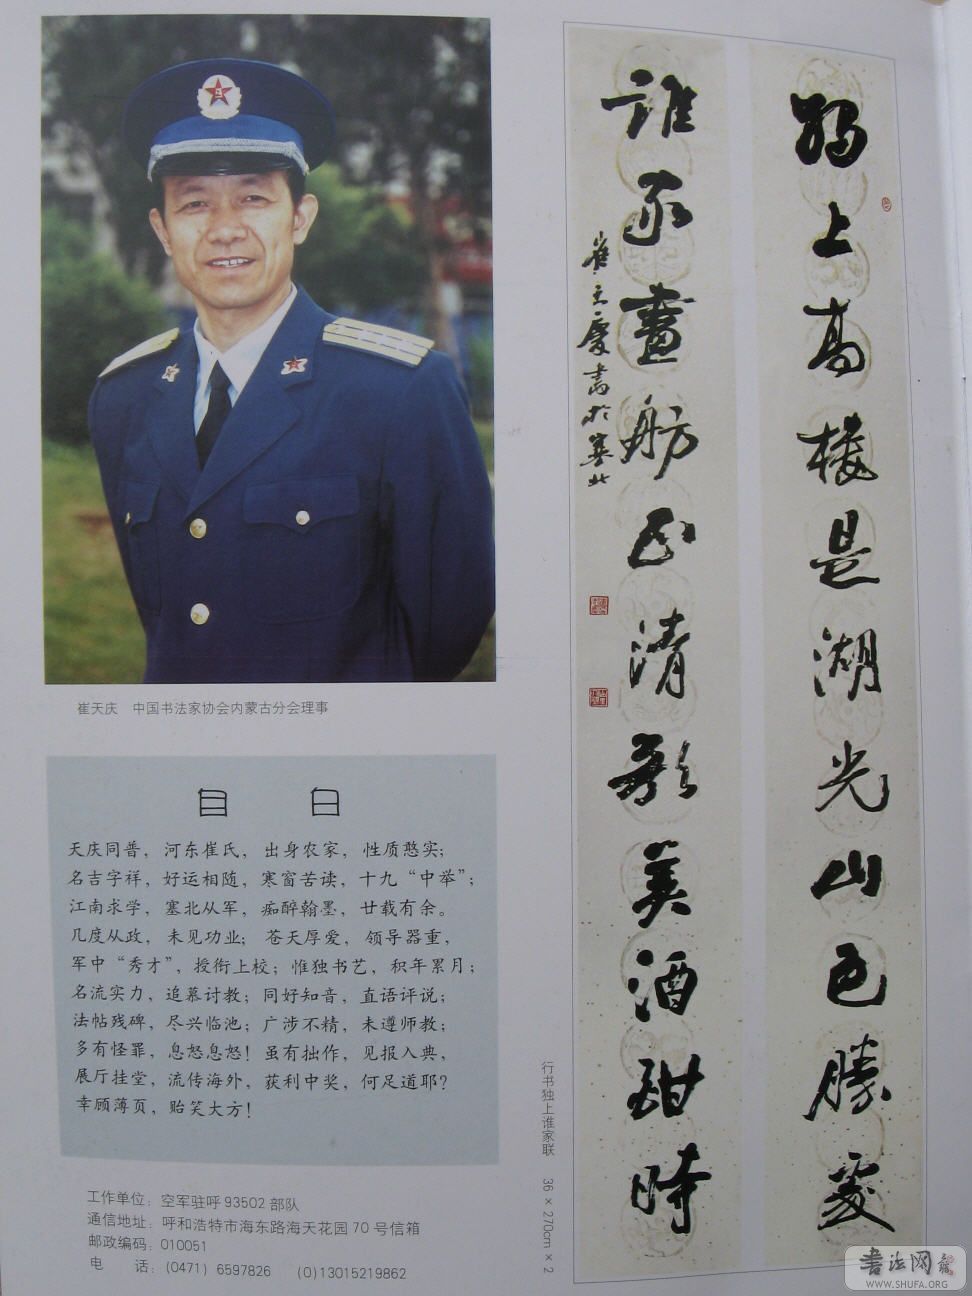 独上高楼是湖光山色胜处
谁家画舫正清歌美酒酣时
崔天庆书于塞北
崔天庆 中国书法家协会内蒙古分会理事
自白
天庆同普，河东崔氏，出身农家，性质憨实；
名吉字祥，好运相随，寒窗苦读，十九“中举”；
江南求学，塞北从军，痴醉翰墨，廿载有余。
几度从政，未见功业；苍天厚爱，领导器重，
军中“秀才”，授衔上校；惟独书艺，积年累月；
名流实力，追慕讨教；同好知音，直语评说；
法帖残碑，尽兴临池；广涉不精，未遵师教；
多有怪罪，息怒息怒！虽有拙作，见报入典，
展厅挂堂，流传海外，获利中奖，何足道耶？
幸顾薄页，贻笑大方！
工作单位：空军驻呼 93502 部队
通信地址：呼和浩特市海东路海天花园 70 号信箱
邮政编码：010051
电 话：(0471) 6597826 (0)13015219862
行书独上谁家联 36 × 270cm × 2
书法网
WWW.SHUFA.ORG